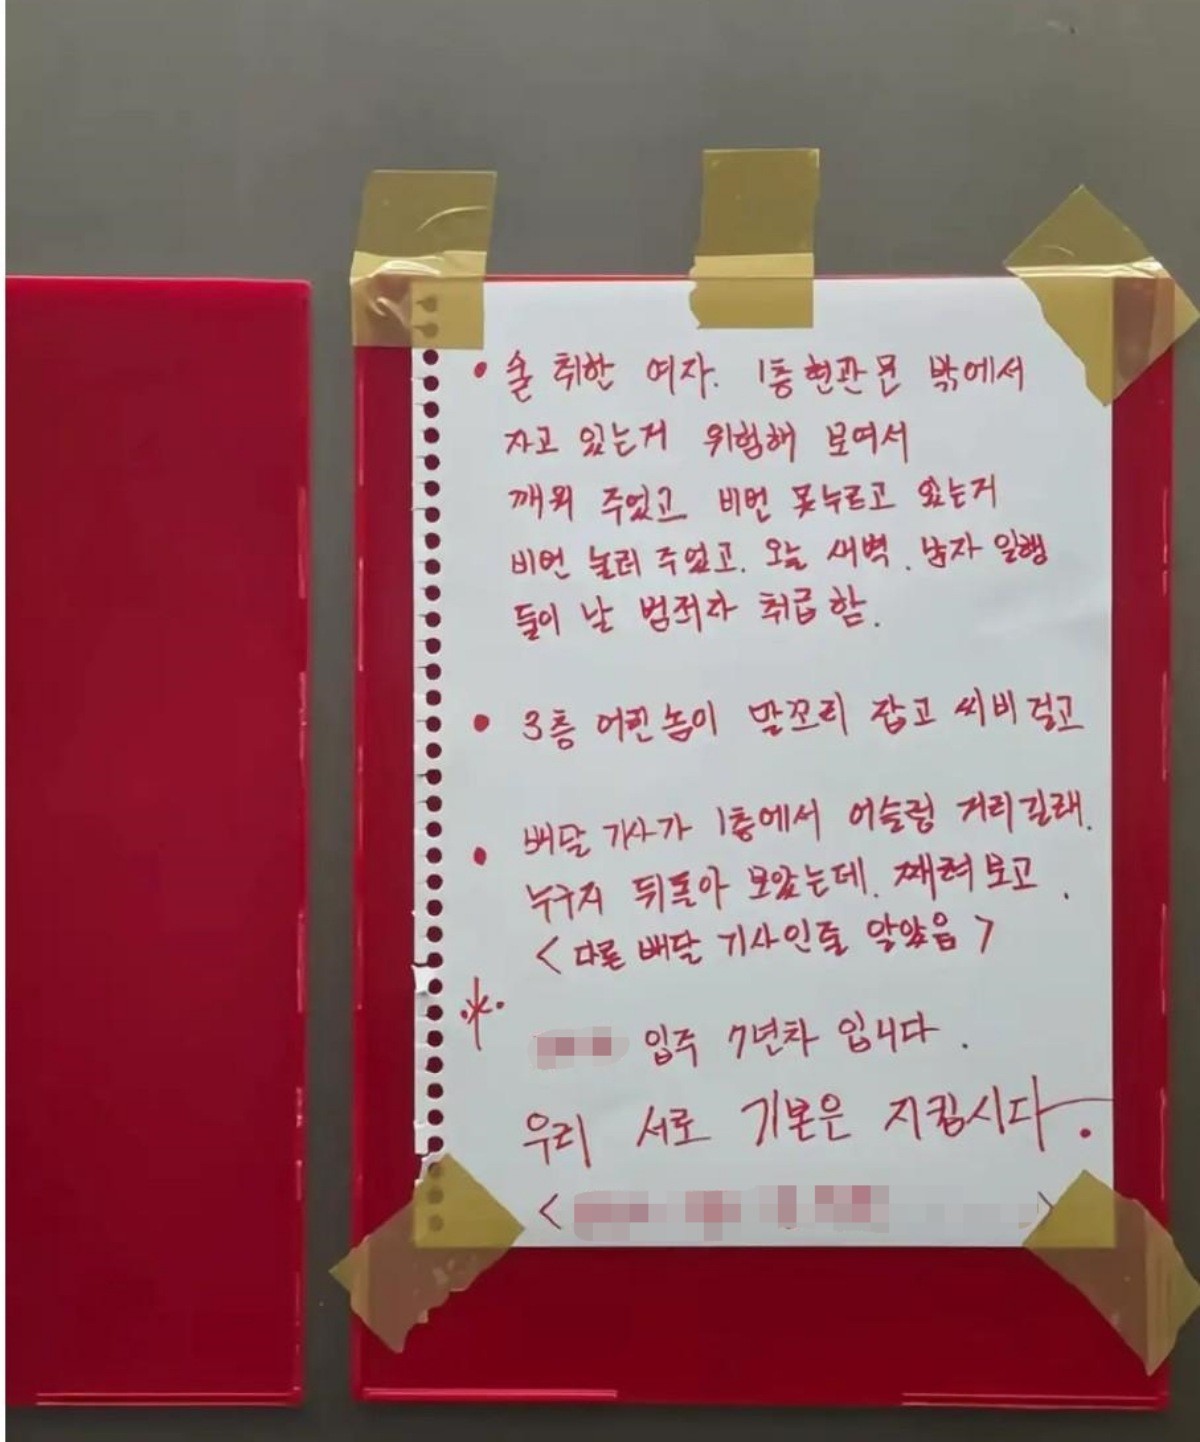 • 술 취한 여자. 1층 현관문 밖에서
자고 있는거 위험해 보여서
깨워 주었고 비번 못누르고 있는거
비번 눌러 주었고. 오늘 새벽. 남자 일행
들이 날 범죄자 취급함.
• 3층 어린놈이 말꼬리 잡고 씨비걸고
• 배달 기사가 1층에서 어슬렁 거리길래.
누구지 뒤돌아 보았는데. 째려보고.
<다른 배달 기사인줄 알았음>
※ 입주 7년차 입니다.
우리 서로 기본은 지킵시다.
< >